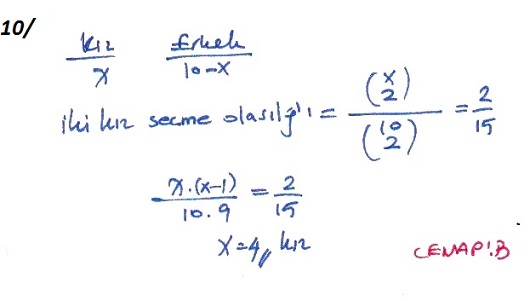 10/
kız Erkek
x 10-x
iki kız seçme olasılığı = (x 2) / (10 2) = 2/15
x.(x-1) / 10.9 = 2/15
x=4,, kız
CEVAP:B